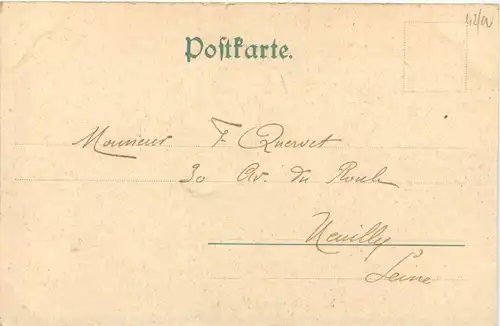 Postkarte.
Monsieur F Quervet
30 Av. du Roule
Neuilly
Seine